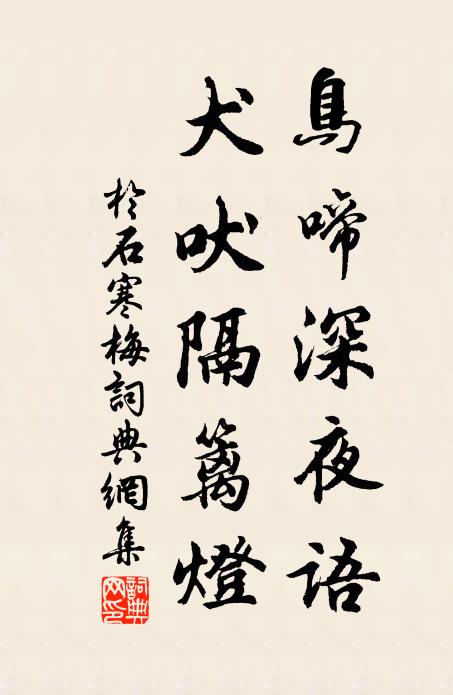 鳥啼深夜語
犬吠隔籬燈
於石寒梅詞典網集
詞典網印